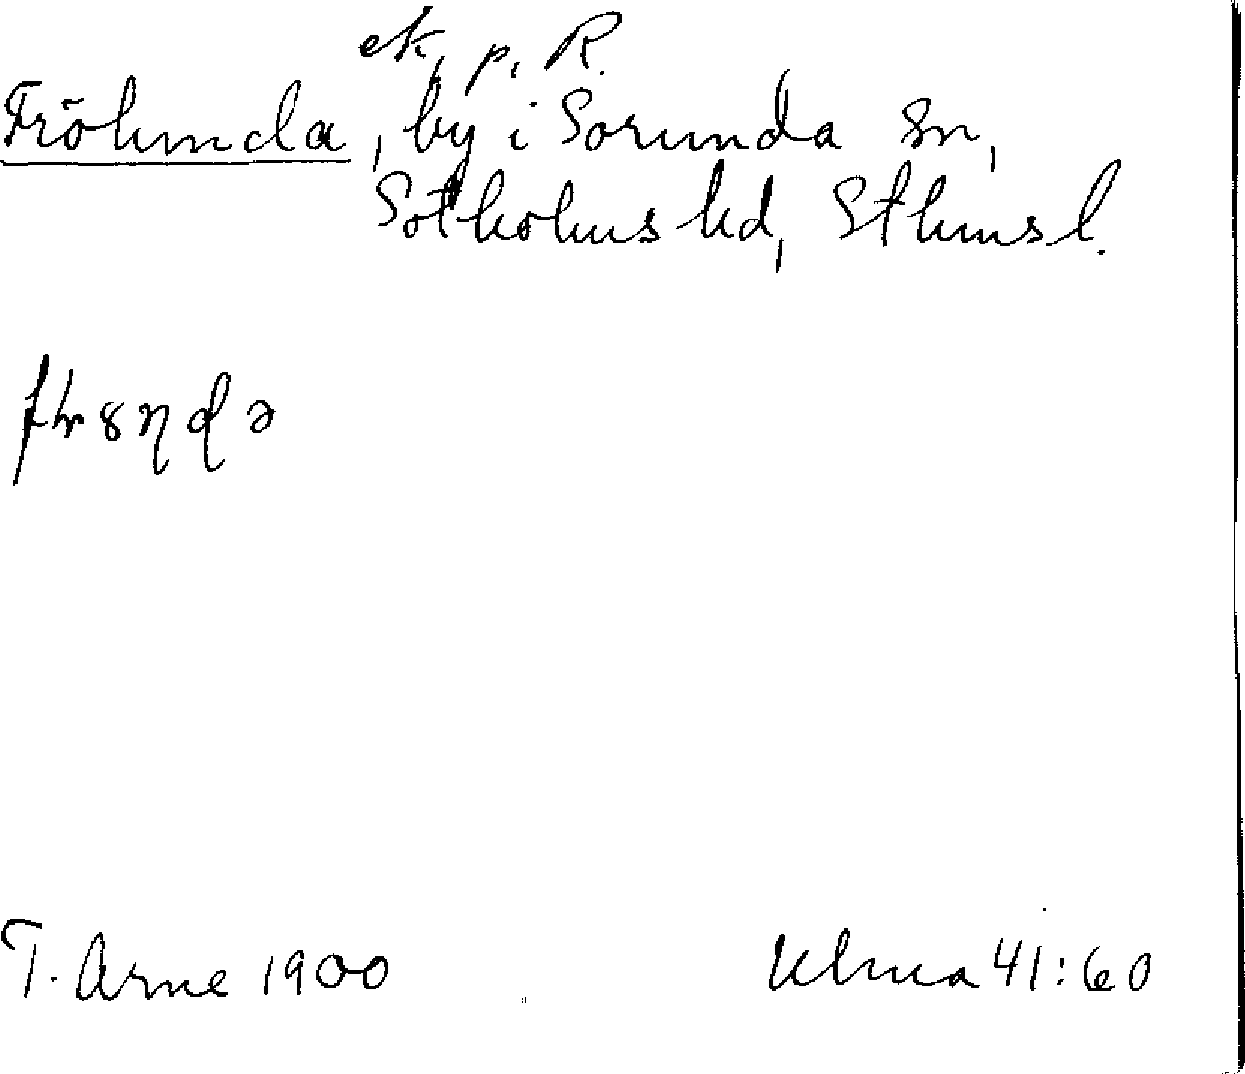 ek. p. R.
Frölunda, by i Sorunda sn,
Sotholms hd, Sthms l.
T. Arne 1900
Ulma 41:60